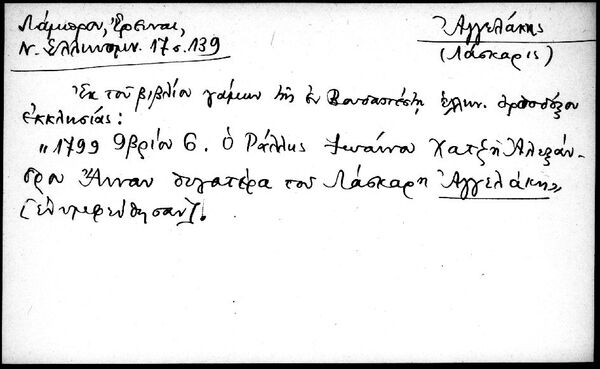 Λάμπρου, Ἔρευναι,
Ν. Ἑλληνομν. 17 σ. 139
Ἀγγελάκης
(Λάσκαρις)
Ἐκ τοῦ βιβλίου γάμων τῆς ἐν Βουδαπέστῃ ἑλλην. ὀρθοδόξου
ἐκκλησίας:
„1799 9βρίου 6. ὁ Ράλλης Ἰωάννου Χατζῆ Ἀλεξάν-
δρου Ἄνναν θυγατέρα τοῦ Λάσκαρη Ἀγγελάκη„
[ἐνυμφεύθησαν].